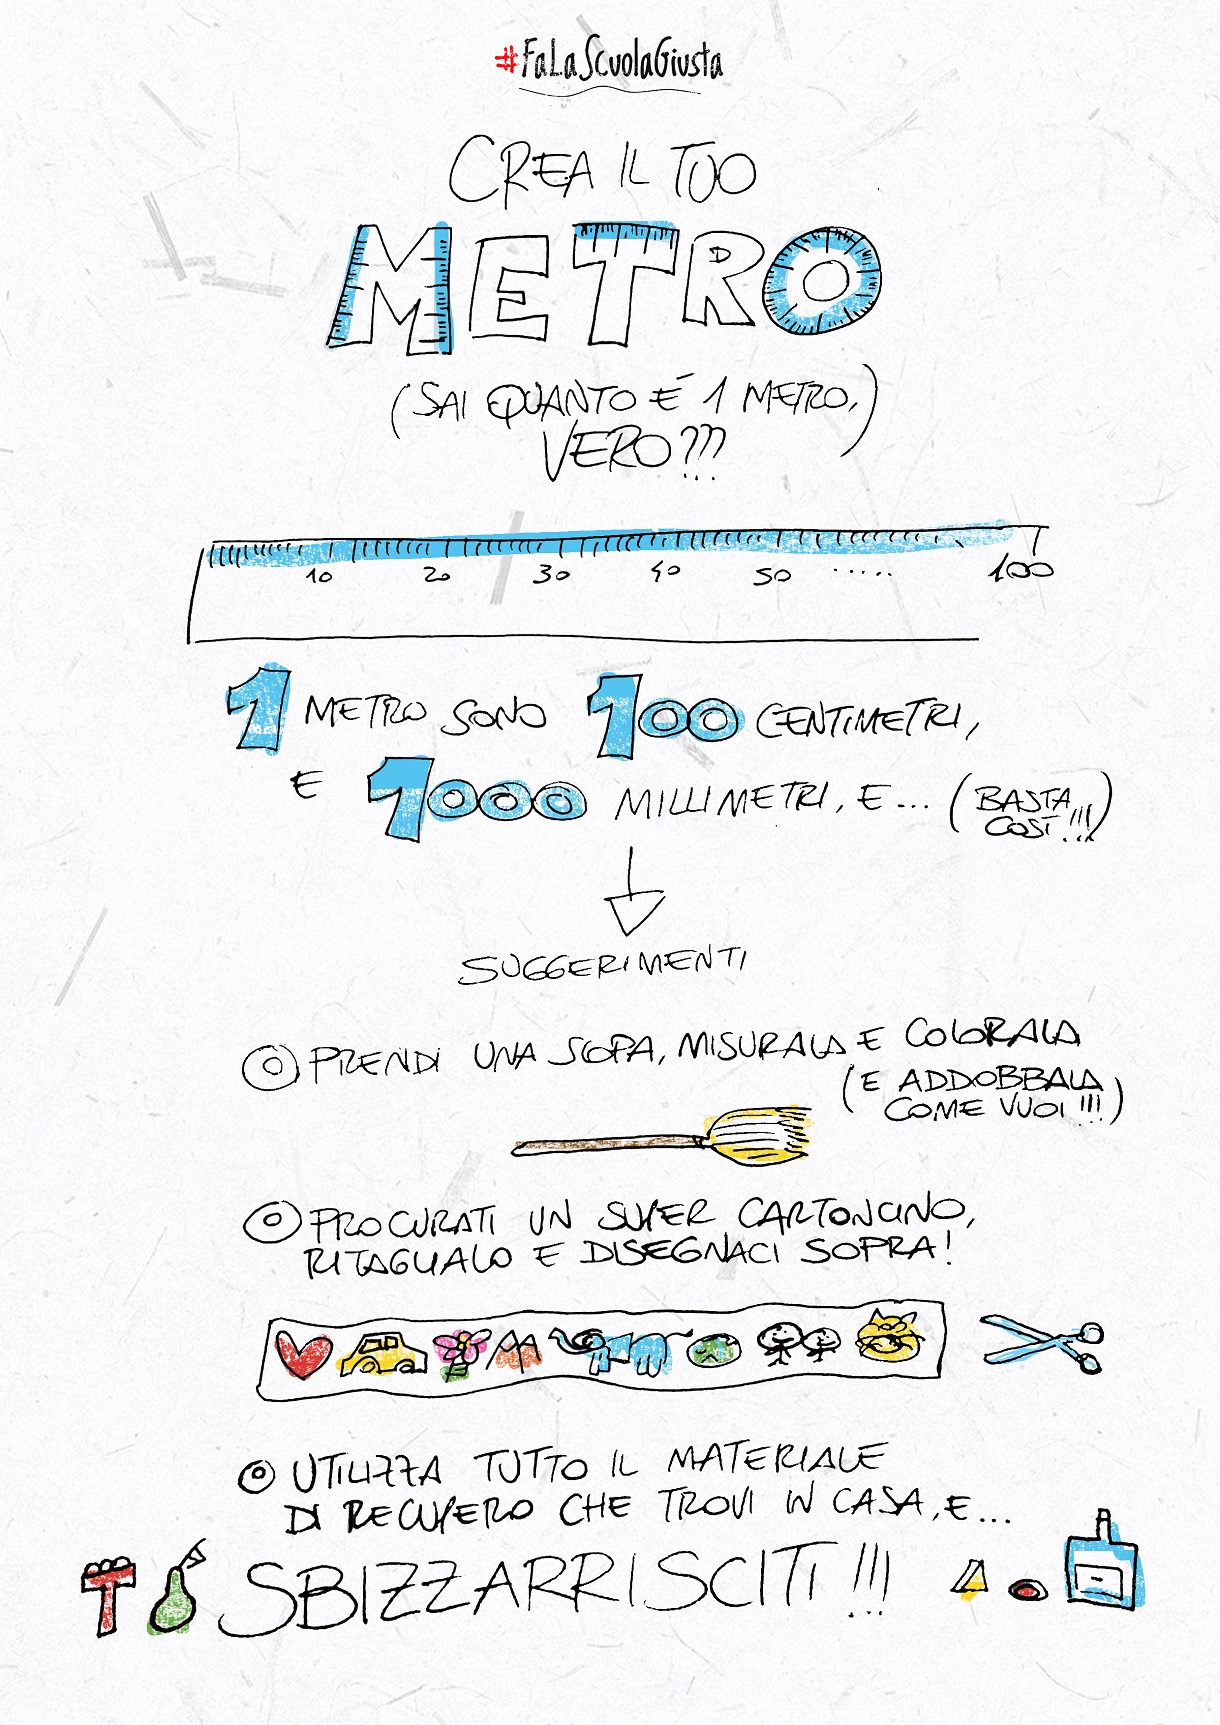 #FaLaScuolaGiusta
CREA IL TUO
METRO
(SAI QUANTO É 1 METRO,
VERO???)
10 20 30 40 50 ..... 100
1 METRO SONO 100 CENTIMETRI,
E 1000 MILLIMETRI, E... (BASTA
COSÌ!!!)
SUGGERIMENTI
PRENDI UNA SCOPA, MISURALA E COLORALA
(E ADDOBBALA
COME VUOI!!!)
PROCURATI UN SUPER CARTONCINO,
RITAGLIALO E DISEGNACI SOPRA!
UTILIZZA TUTTO IL MATERIALE
DI RECUPERO CHE TROVI IN CASA, E...
SBIZZARRISCITI!!!